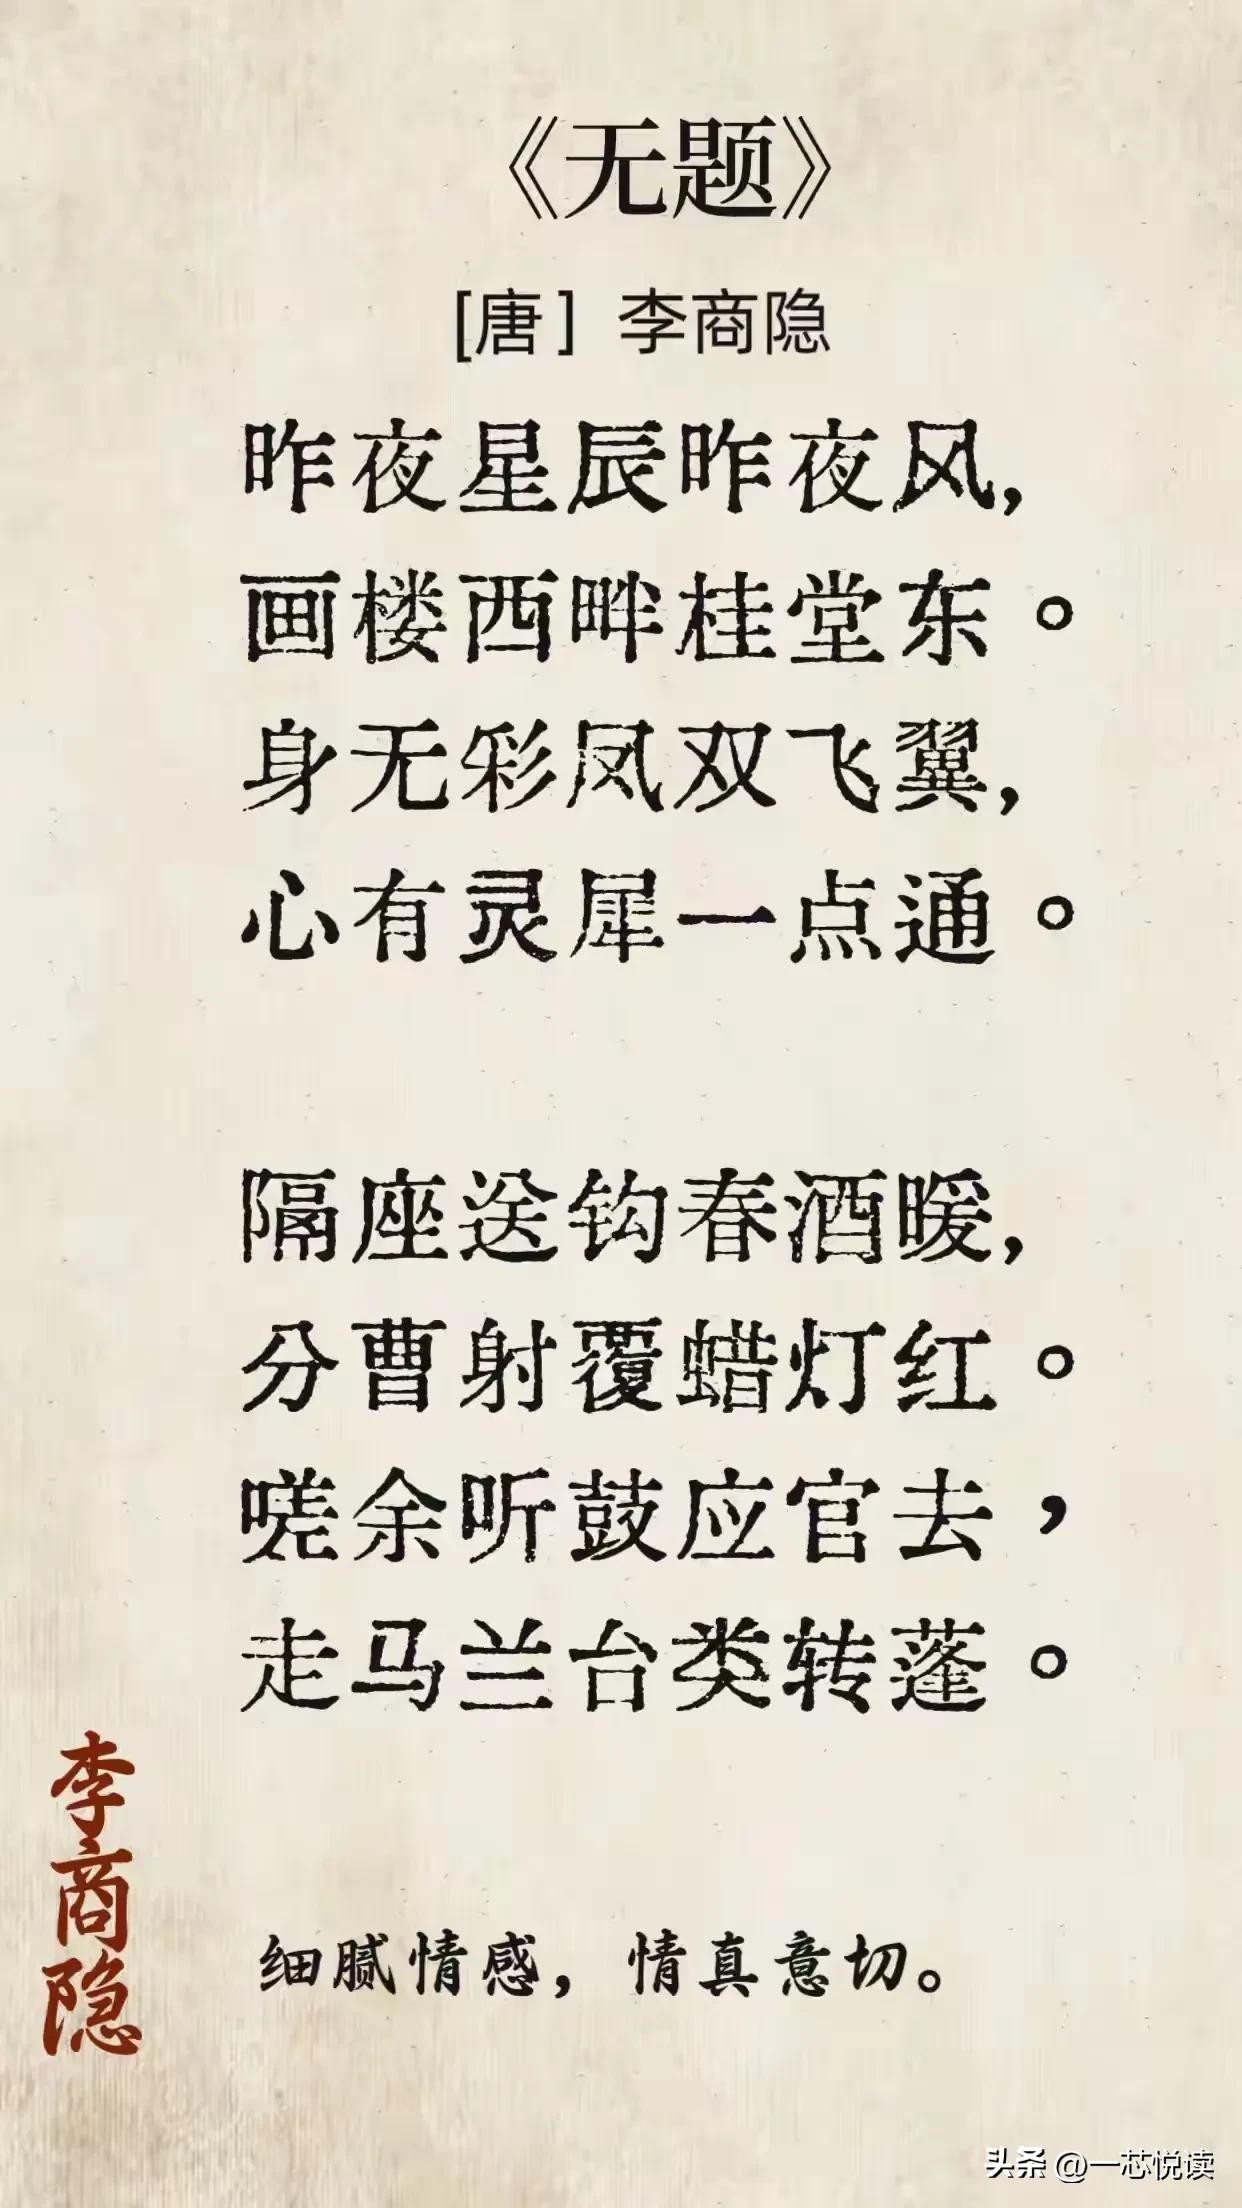 《无题》
[唐] 李商隐
昨夜星辰昨夜风，
画楼西畔桂堂东。
身无彩凤双飞翼，
心有灵犀一点通。
隔座送钩春酒暖，
分曹射覆蜡灯红。
嗟余听鼓应官去，
走马兰台类转蓬。
李商隐
细腻情感，情真意切。
头条 @一芯悦读